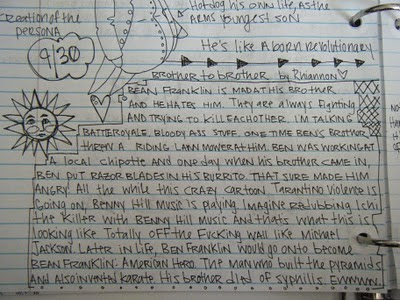 Creation of the
persona
9/30
Hotdog his own life, as the
ARMS youngest son
He's like A born revolutionary
Brother to brother by Rhiannon
BEAN FRANKLIN is MAD AT HIS BROTHER
AND HE HATES HIM. They are always fighting
AND TRYING TO KILL EACH OTHER. I'M TALKING
BATTLE ROYALE. BLOODY ASS STUFF. ONE TIME BEN'S BROTHER
THREW A RIDING LAWN MOWER AT HIM. BEN WAS WORKING AT
A local chipotle and one day when his brother came in,
BEN PUT RAZOR BLADES IN HIS BURRITO. THAT SURE MADE HIM
ANGRY! All the while this CRAZY CARTOON TARANTINO VIOLENCE IS
GOING ON, BENNY HILL MUSIC is playing. IMAGINE REDUBBING Ichi
the Killer with BENNY HILL MUSIC AND thats what this is
looking like. Totally OFF the FUCKING WALL like MICHAEL
JACKSON. LATER IN life, BEN FRANKLIN would go onto become
BEAN FRANKLIN: AMERICAN HERO. THE MAN who built the PYRAMIDS
AND Also invented KARATE. His brother died of syphilis. Emmmm.